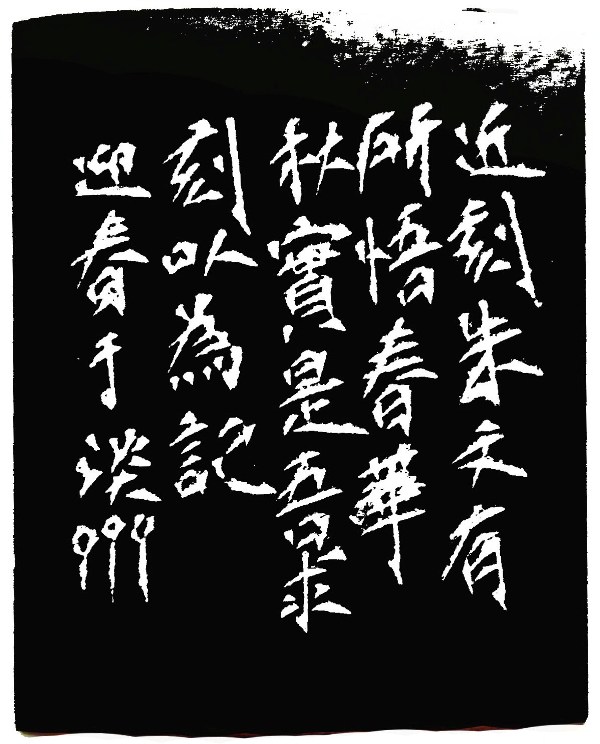 近刻朱文有
所悟春華
秋實是吾求
刻以為記
迎春于淡州